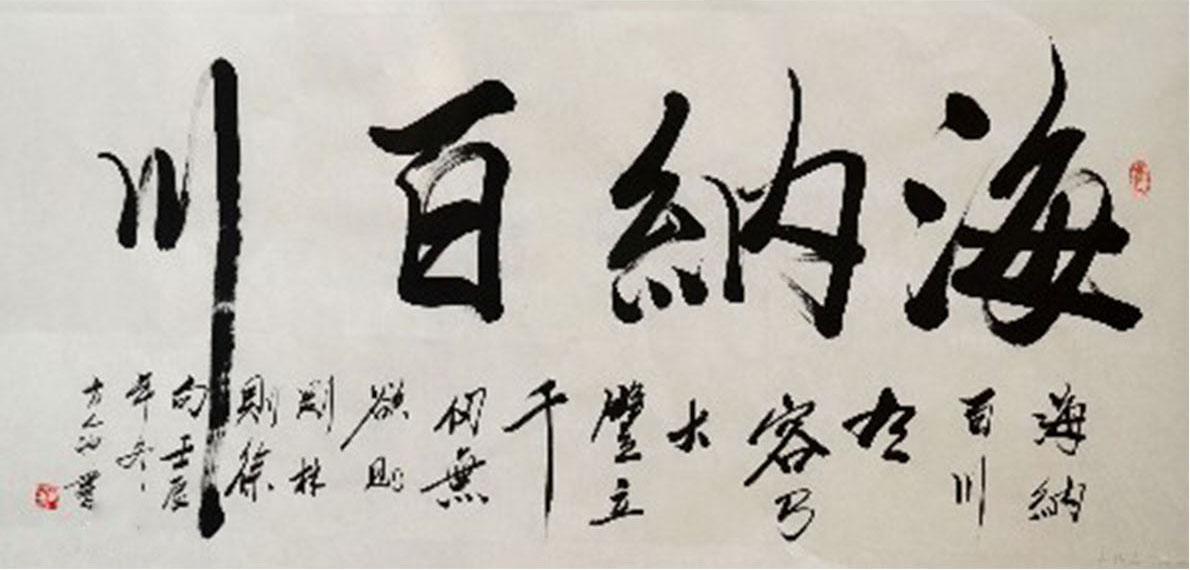 海納百川
海納
百川
有
容乃
大
壁立
千
仞無
欲則
剛林
則徐
句壬辰
年冬